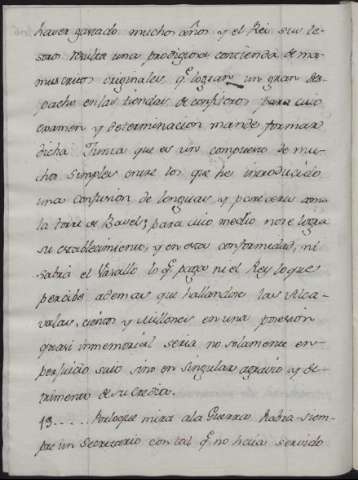 haver ganado muchos años, y el Rei sus te-
soros. Resulta una prodigiosa contienda de ma-
nuscritos originales q.e logran un gran des-
pacho en las tiendas de confiteros para cuio
examen y determinacion mandè formar
dicha Junta que es un compuesto de mu-
chos simples entre los que he introducido
una confusion de lenguas, y pareceres como
la torre de Bavel; para cuio medio no se logra
su establecimiento, y en esta conformidad, ni
sabrà el Vasallo lo q.e paga ni el Rey lo que
percibe ademas que hallandose las Alca-
valas, cientos y Millones en una posesion
quasi inmemorial seria no solamente en
perjuicio suio sino en singular agravio, y de-
trimento de su credito.
13..... Por lo que mira a la Guerra, habrà siem-
pre un Secretario con tal q.e no haia servido